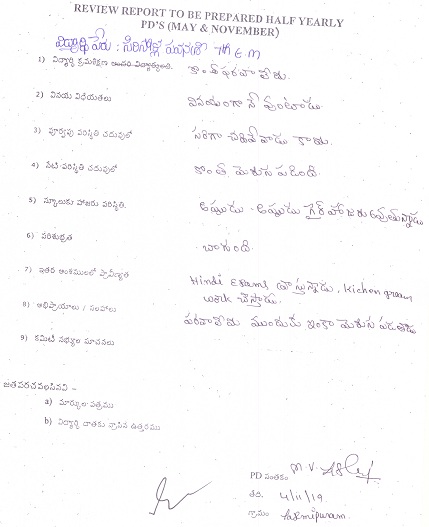 REVIEW REPORT TO BE PREPARED HALF YEARLY
PD'S (MAY & NOVEMBER)
విద్యార్థి పేరు : సిరిపల్లి 7th E.M
1) విద్యార్థి క్రమశిక్షణ
2) వినయ విధేయతలు వినయంగా నే వుంటాడు.
3) పూర్వపు పరిస్థితి చదువులో సరిగా చదివే వాడు కాదు.
4) నేటి పరిస్థితి చదువులో కొంత మెరుగు పడింది.
5) స్కూలుకు హాజరు పరిస్థితి. అప్పుడు - అప్పుడు గైర్ హాజరు అవుతున్నాడు
6) పరిశుభ్రత బాగుంది.
7) ఇతర అంశములలో ప్రావీణ్యత Hindi Exams వ్రాస్తున్నాడు, Kichen
work చేస్తాడు.
8) అభిప్రాయాలు / సలహాలు పరవాలేదు ముందుకు ఇంకా మెరుగు పడతాడు
9) కమిటీ సభ్యుల సూచనలు
జతపరచవలసినవి -
a) మార్కుల పత్రము
b) విద్యార్థి దాతకు వ్రాసిన ఉత్తరము
PD సంతకం M. V.
తేది. 4/11/19
గ్రామం Laxmipuram.